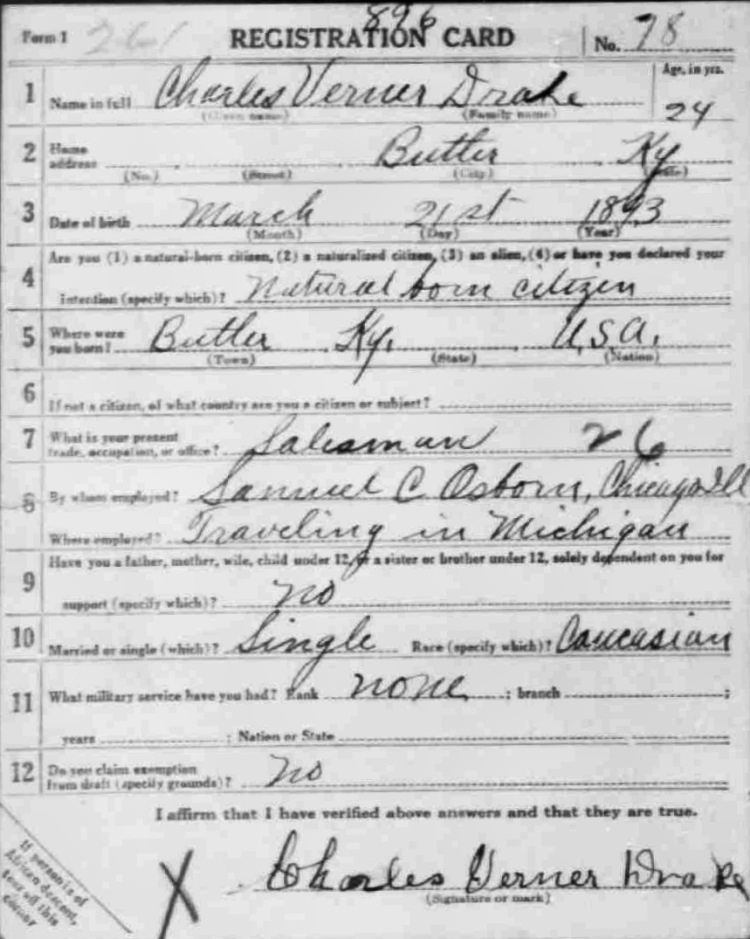 896
Form 1 261 REGISTRATION CARD No. 78
1 Name in full Charles Verner Drake Age, in yrs.
(Given name) (Family name) 24
2 Home address Butler Ky
(No.) (Street) (City) (State)
3 Date of birth March 21st 1893
(Month) (Day) (Year)
4 Are you (1) a natural-born citizen, (2) a naturalized citizen, (3) an alien, (4) or have you declared your
intention (specify which)? Natural born citizen
5 Where were you born? Butler Ky. U.S.A.
(Town) (State) (Nation)
6 If not a citizen, of what country are you a citizen or subject?
7 What is your present trade, occupation, or office? Salesman 26
8 By whom employed? Samuel C Osborn, Chicago Ill
Where employed? Traveling in Michigan
9 Have you a father, mother, wife, child under 12, or a sister or brother under 12, solely dependent on you for
support (specify which)? no
10 Married or single (which)? Single Race (specify which)? Caucasian
11 What military service have you had? Rank none ; branch ;
years ; Nation or State
12 Do you claim exemption from draft (specify grounds)? No
I affirm that I have verified above answers and that they are true.
X Charles Verner Drake
(Signature or mark)
If person is of
African descent,
tear off this
corner